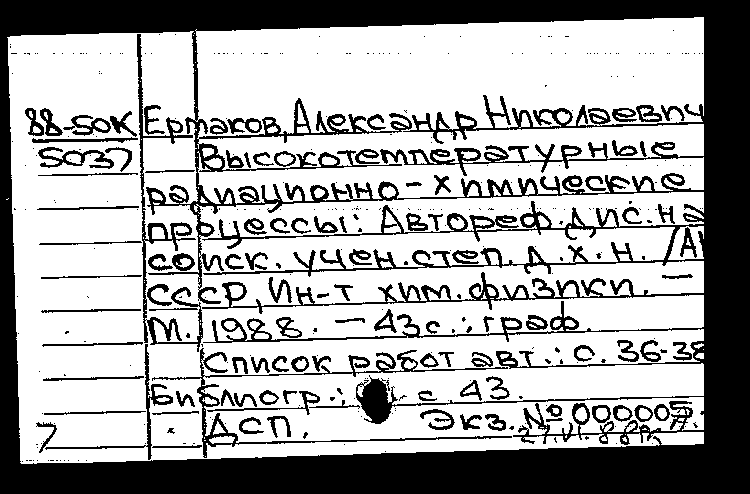 88-50К Ермаков, Александр Николаевич
5037 Высокотемпературные
радиационно-химические
процессы: Автореф. дис. на
соиск. учен. степ. д.х.н. /АН
СССР, Ин-т хим. физики. —
М. 1988. — 43 с.: граф.
Список работ авт.: с. 36-38
Библиогр.: с. 43.
7 ДСП. Экз. № 000005.